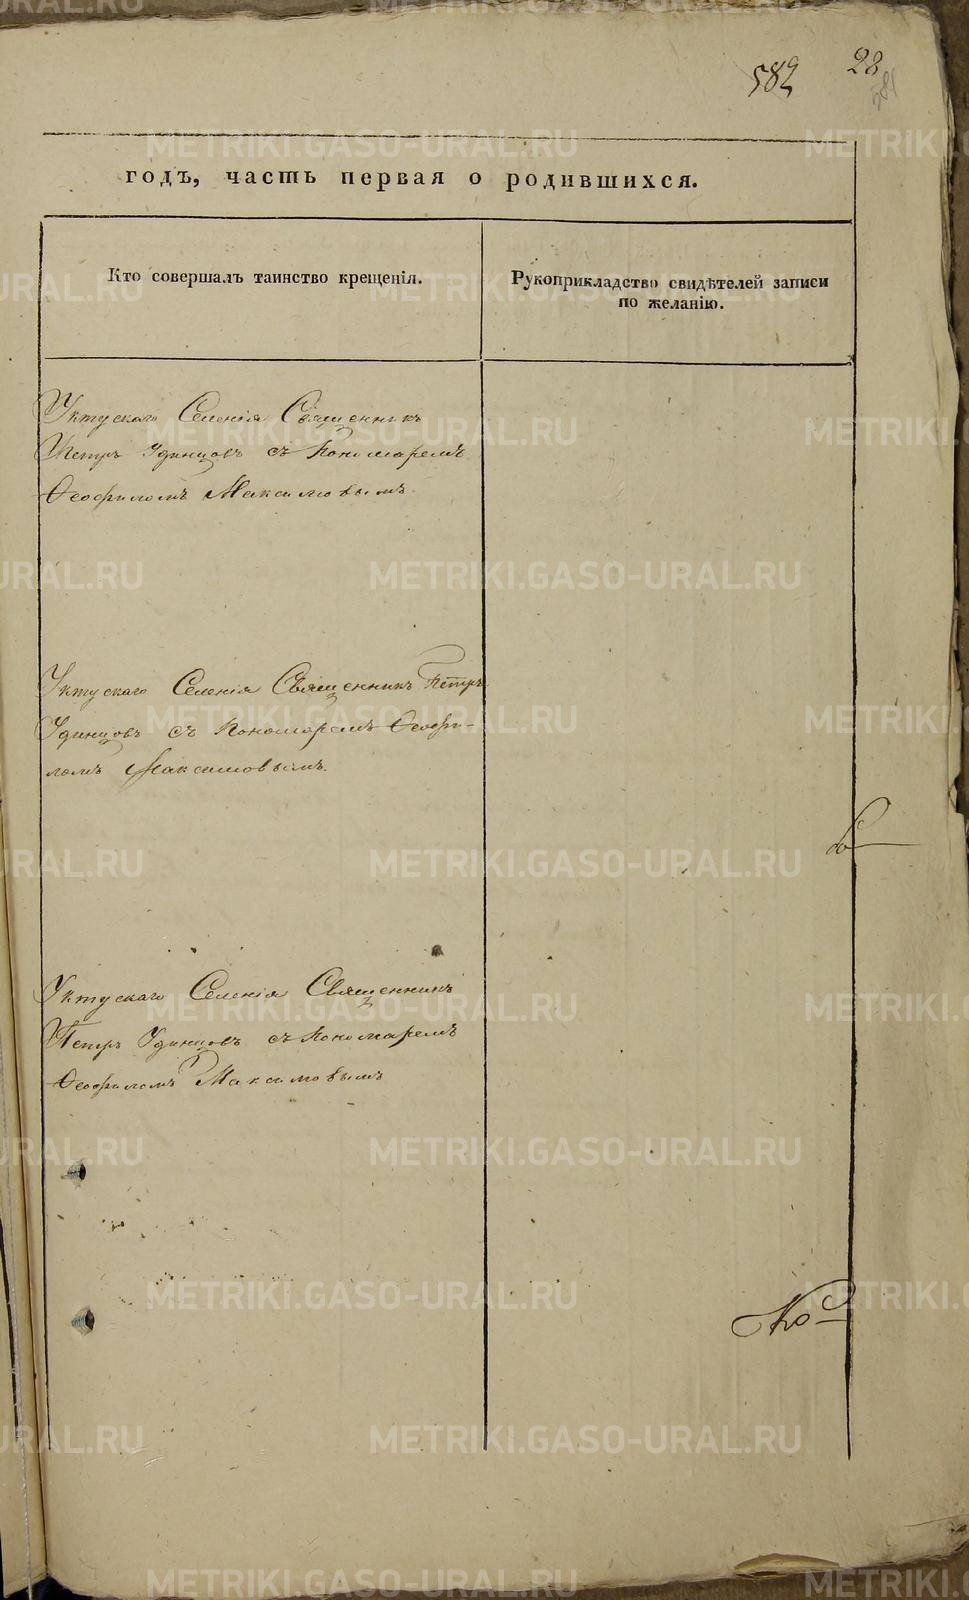 582 28
годъ, часть первая о родившихся.
Кто совершалъ таинство крещенія.
Рукоприкладство свидѣтелей записи
по желанію.
Уктускаго Селенія Священникъ
Петръ Удинцовъ съ Пономаремъ
Ѳеофиломъ Максимовымъ.
Уктускаго Селенія Священникъ Петръ
Удинцовъ съ Пономаремъ Ѳеофи-
ломъ Максимовымъ.
Уктускаго Селенія Священникъ
Петръ Удинцовъ съ Пономаремъ
Ѳеофиломъ Максимовымъ
METRIKI.GASO-URAL.RU